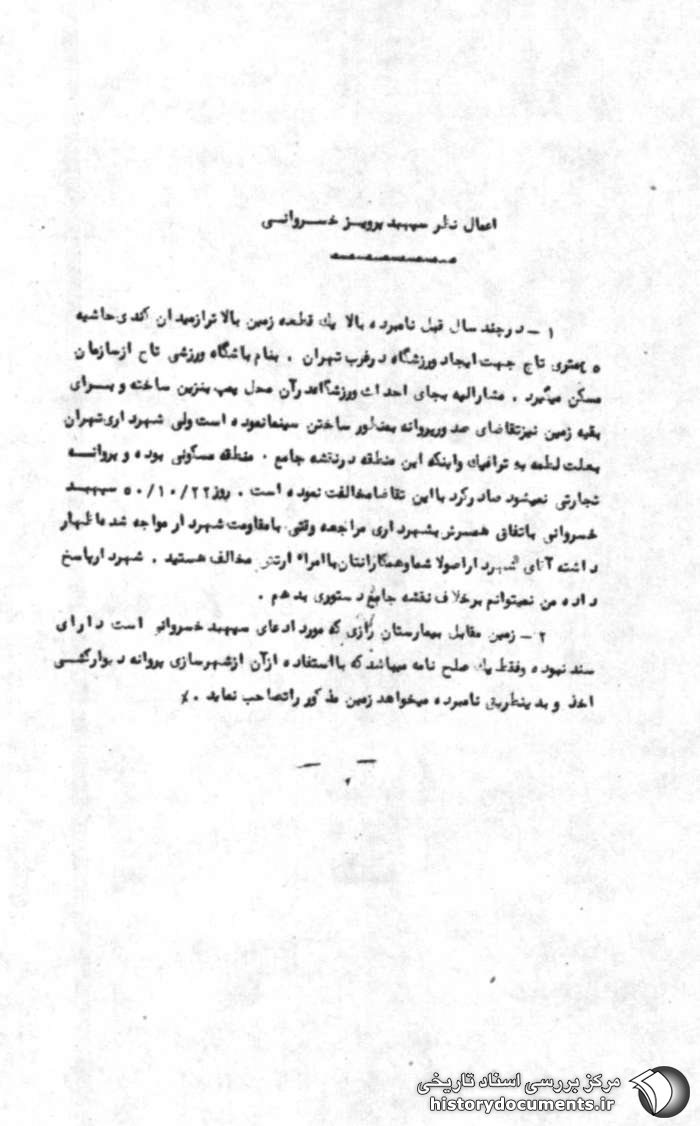 اعمال نظر سپهبد پرویز خسروانی
۱ - در چند سال قبل نامبرده بالا یک قطعه زمین بالاتر از میدان کندی حاشیه
۵ متری تاج جهت ایجاد ورزشگاه در غرب تهران . بنام باشگاه ورزشی تاج از سازمان
مسکن میگیرد . مشارالیه بجای احداث ورزشگاه در آن محل پمپ بنزین ساخته و برای
بقیه زمین نیز تقاضای صدور پروانه بمنظور ساختن سینما نموده است ولی شهرداری تهران
بعلت لطمه به ترافیک و اینکه این منطقه در نقشه جامع . منطقه مسکونی بوده و پروانه
تجارتی نمیشود صادر کرد با این تقاضا مخالفت نموده است . روز ۵۰/۱۰/۲۲ سپهبد
خسروانی باتفاق همسرش بشهرداری مراجعه وقتی با مقاومت شهردار مواجه شد اظهار
داشته آقای شهردار اصولا شما و همکارانتان با امراء ارتش مخالف هستید . شهردار پاسخ
داده من نمیتوانم بر خلاف نقشه جامع دستوری بدهم .
۲ - زمین مقابل بیمارستان رازی که مورد ادعای سپهبد خسروانی است دارای
سند نبوده و فقط یک صلح نامه میباشد که با استفاده از آن از شهرسازی پروانه دیوارکشی
اخذ و بدینطریق نامبرده میخواهد زمین مذکور را تصاحب نماید .٪
مرکز بررسی اسناد تاریخی
historydocuments.ir